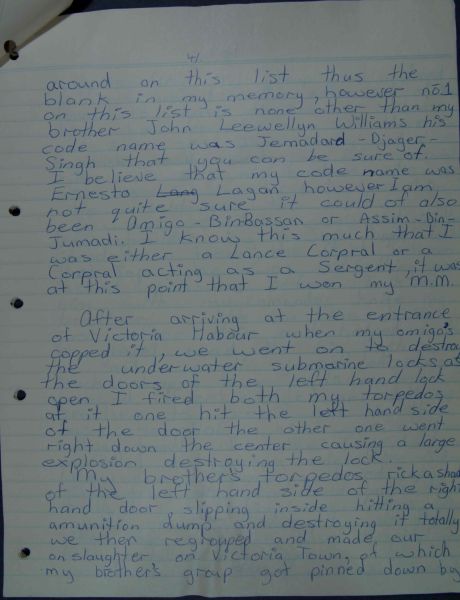 4/
around on this list thus the
blank in my memory, however no.1
on this list is none other than my
brother John Leewellyn Williams his
code name was Jemadard - Djager -
Singh that you can be sure of.
I believe that my code name was
Ernesto Lang Lagan however I am
not quite sure it could of also
been Omigo - BinBassan or Assim - Din -
Jumadi. I know this much that I
was either a Lance Corpral or a
Corpral acting as a Sergent, it was
at this point that I won my M.M.
After arriving at the entrance
of Victoria Habour when my omigo's
copped it, we went on to destroy
the underwater submarine locks, as
the doors of the left hand lock
open I fired both my torpedos
at it one hit the left hand side
of the door the other one went
right down the center causing a large
explosion destroying the lock.
My brother's torpedos rickashad
of the left hand side of the right
hand door, slipping inside hitting a
amunition dump and destroying it totally
we then regrouped and made our
onslaughter on Victoria Town, of which
my brother's group got pinned down by